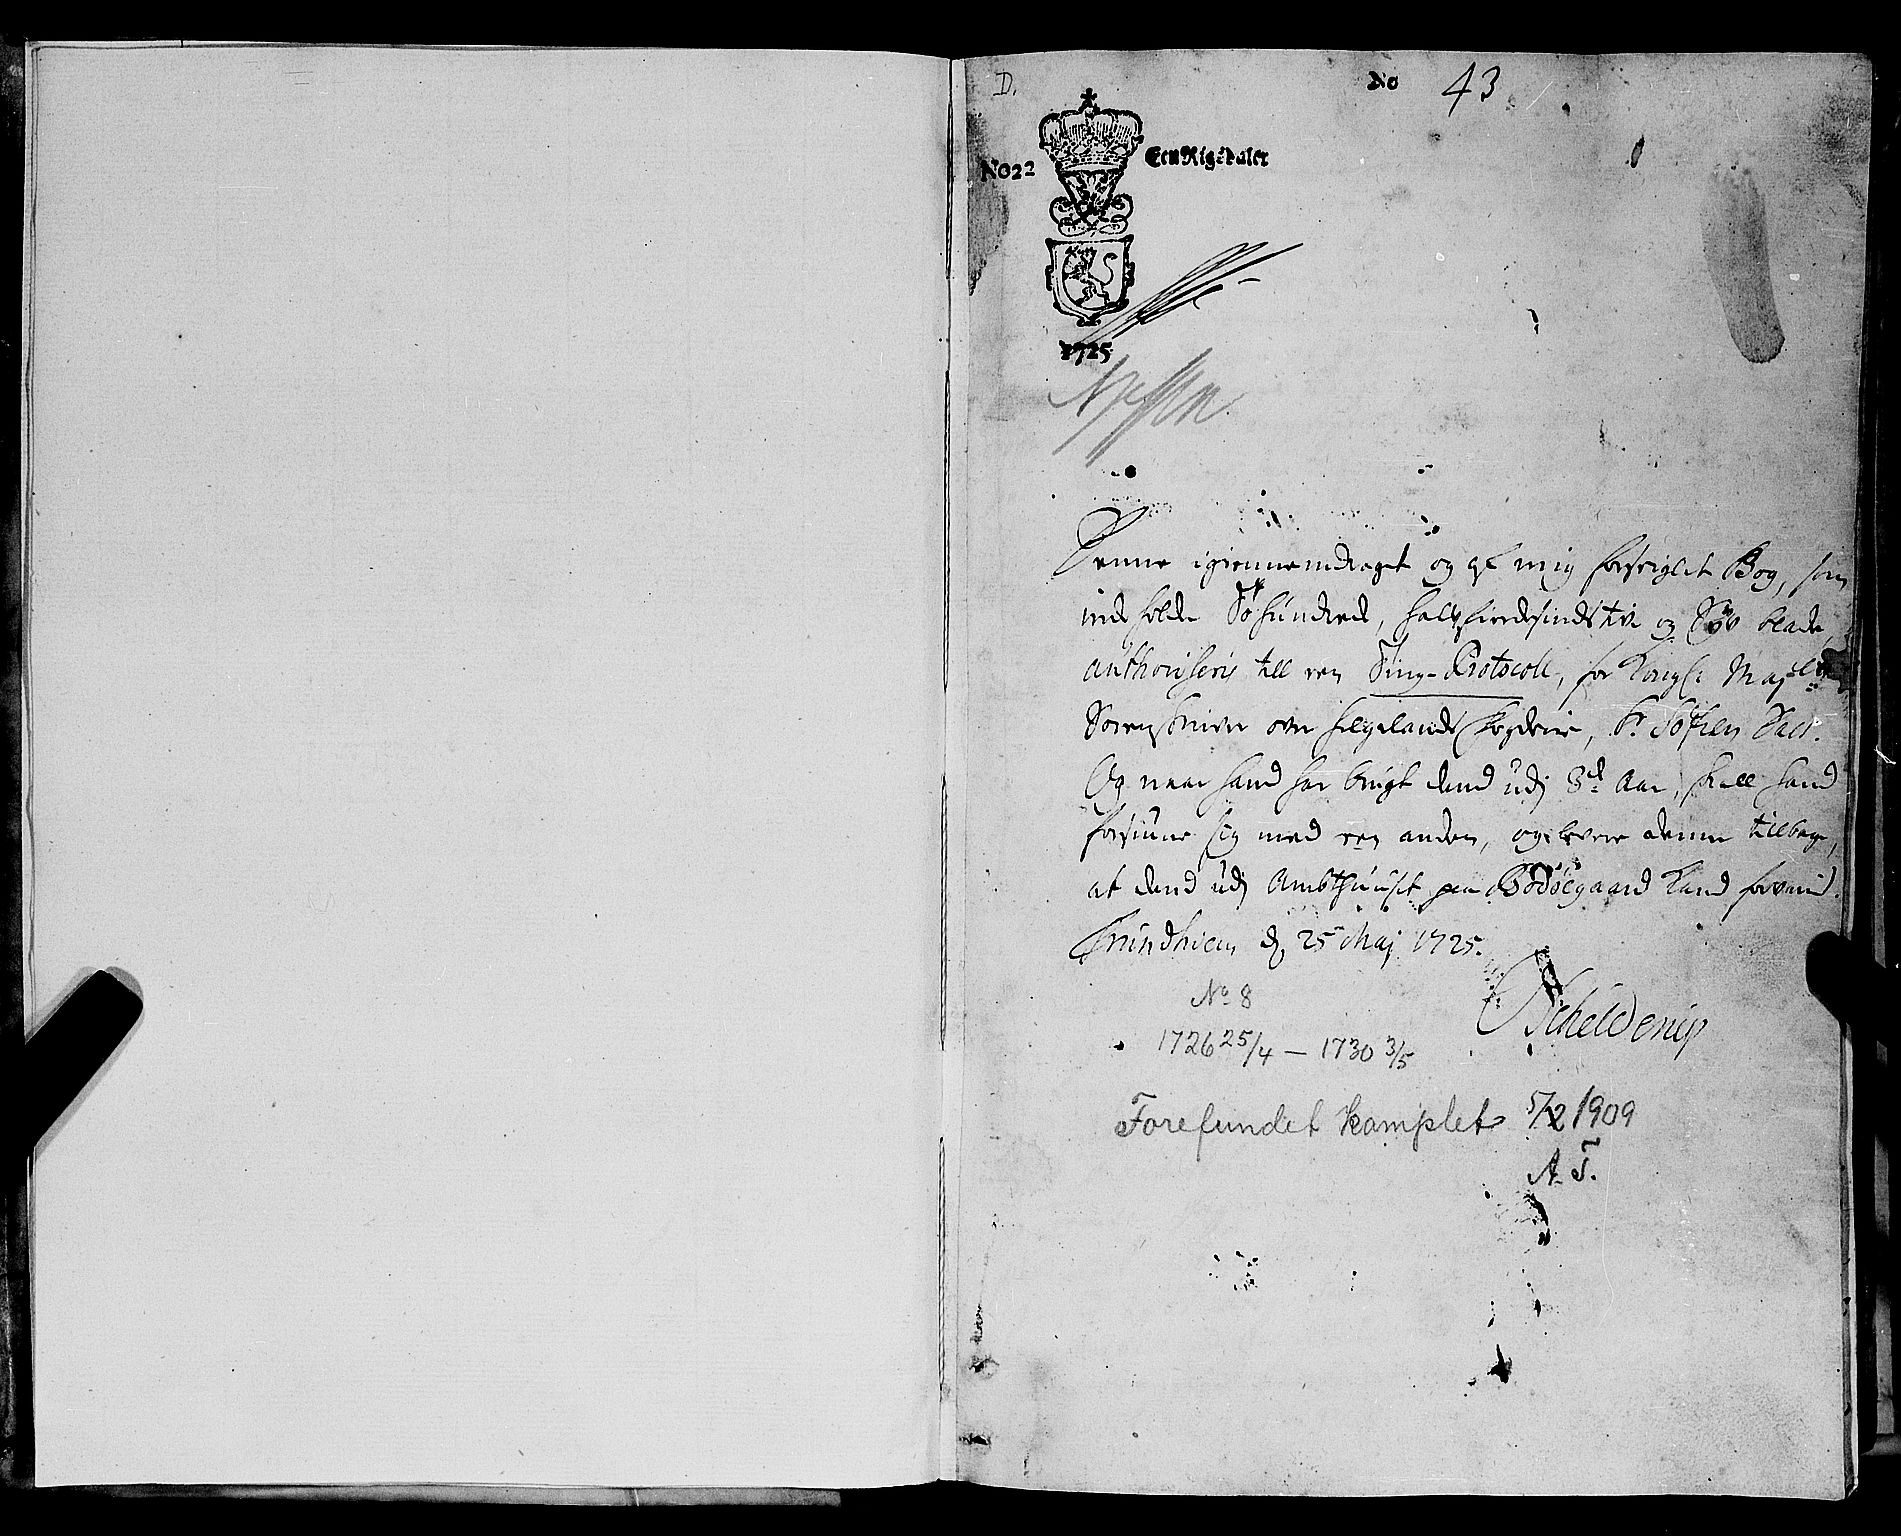 D.
No 43
No22
Een Rigsdaler
1725
Denne igiennemdraget og af mig forseiglet Bog, som
indholder Tohundred, halffierdesindstive og Syv blade,
authoriseris till een Ting-Protocoll, for Kongl: May:
Sorenskriver over Helgelands fogderie, Sr.
Og naar hand har brugt dend udj 3de Aar, skall hand
forsiune sig med een anden, og levere denne tilbage,
at dend udj Ambthuuset paa Bodøegaard kand forvaris.
Trundhiem d. 25 Maj 1725.
Schelderup
No 8
1726 25/4 — 1730 3/5
Forefundet komplet 5/2 1909
A. T.